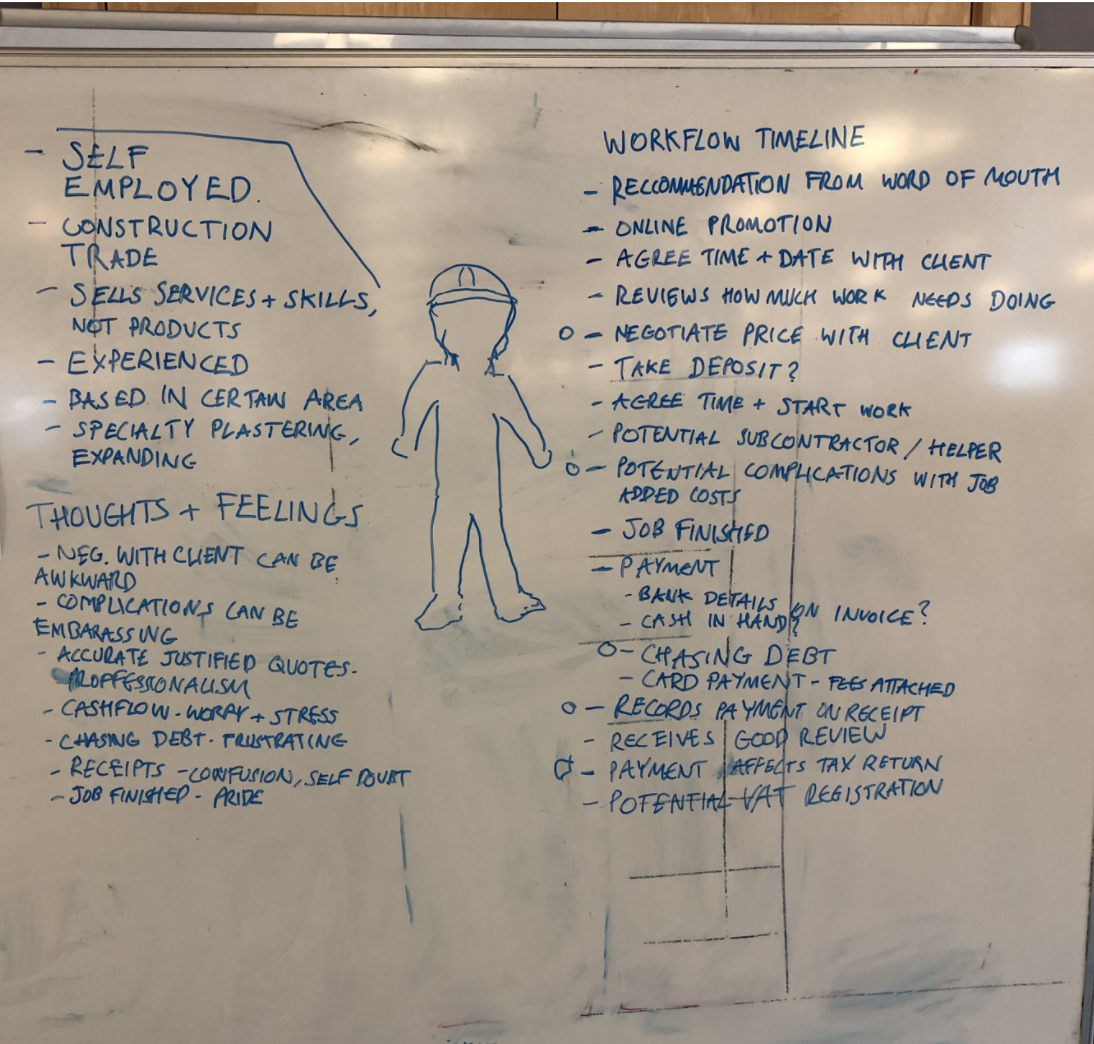 - SELF
EMPLOYED.
- CONSTRUCTION
TRADE
- SELLS SERVICES + SKILLS,
NOT PRODUCTS
- EXPERIENCED
- BASED IN CERTAIN AREA
- SPECIALTY PLASTERING,
EXPANDING
THOUGHTS + FEELINGS
- NEG. WITH CLIENT CAN BE
AWKWARD
- COMPLICATIONS CAN BE
EMBARASSING
- ACCURATE JUSTIFIED QUOTES-
PROFFESSIONALISM
- CASHFLOW - WORRY + STRESS
- CHASING DEBT - FRUSTRATING
- RECEIPTS - CONFUSION, SELF DOUBT
- JOB FINISHED - PRIDE
WORKFLOW TIMELINE
- RECCOMMENDATION FROM WORD OF MOUTH
- ONLINE PROMOTION
- AGREE TIME + DATE WITH CLIENT
- REVIEWS HOW MUCH WORK NEEDS DOING
O - NEGOTIATE PRICE WITH CLIENT
- TAKE DEPOSIT?
- AGREE TIME + START WORK
- POTENTIAL SUBCONTRACTOR / HELPER
O - POTENTIAL COMPLICATIONS WITH JOB
ADDED COSTS
- JOB FINISHED
- PAYMENT
- BANK DETAILS ON INVOICE?
- CASH IN HAND?
O - CHASING DEBT
- CARD PAYMENT - FEES ATTACHED
O - RECORDS PAYMENT ON RECEIPT
- RECEIVES GOOD REVIEW
O - PAYMENT AFFECTS TAX RETURN
- POTENTIAL VAT REGISTRATION